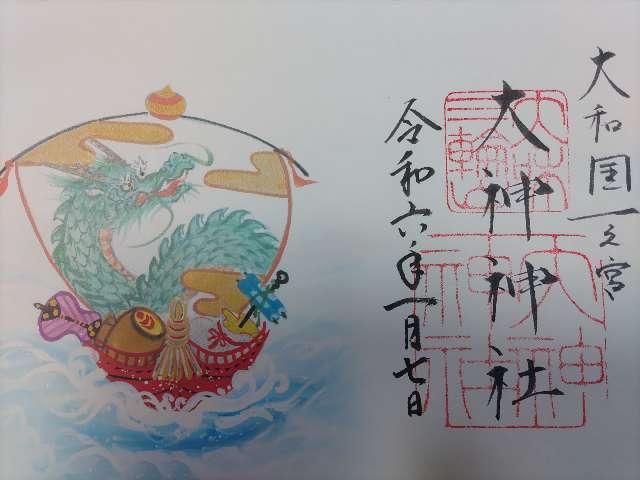 大和国一之宮
大神神社
令和六年一月七日
三輪
大神神社
米